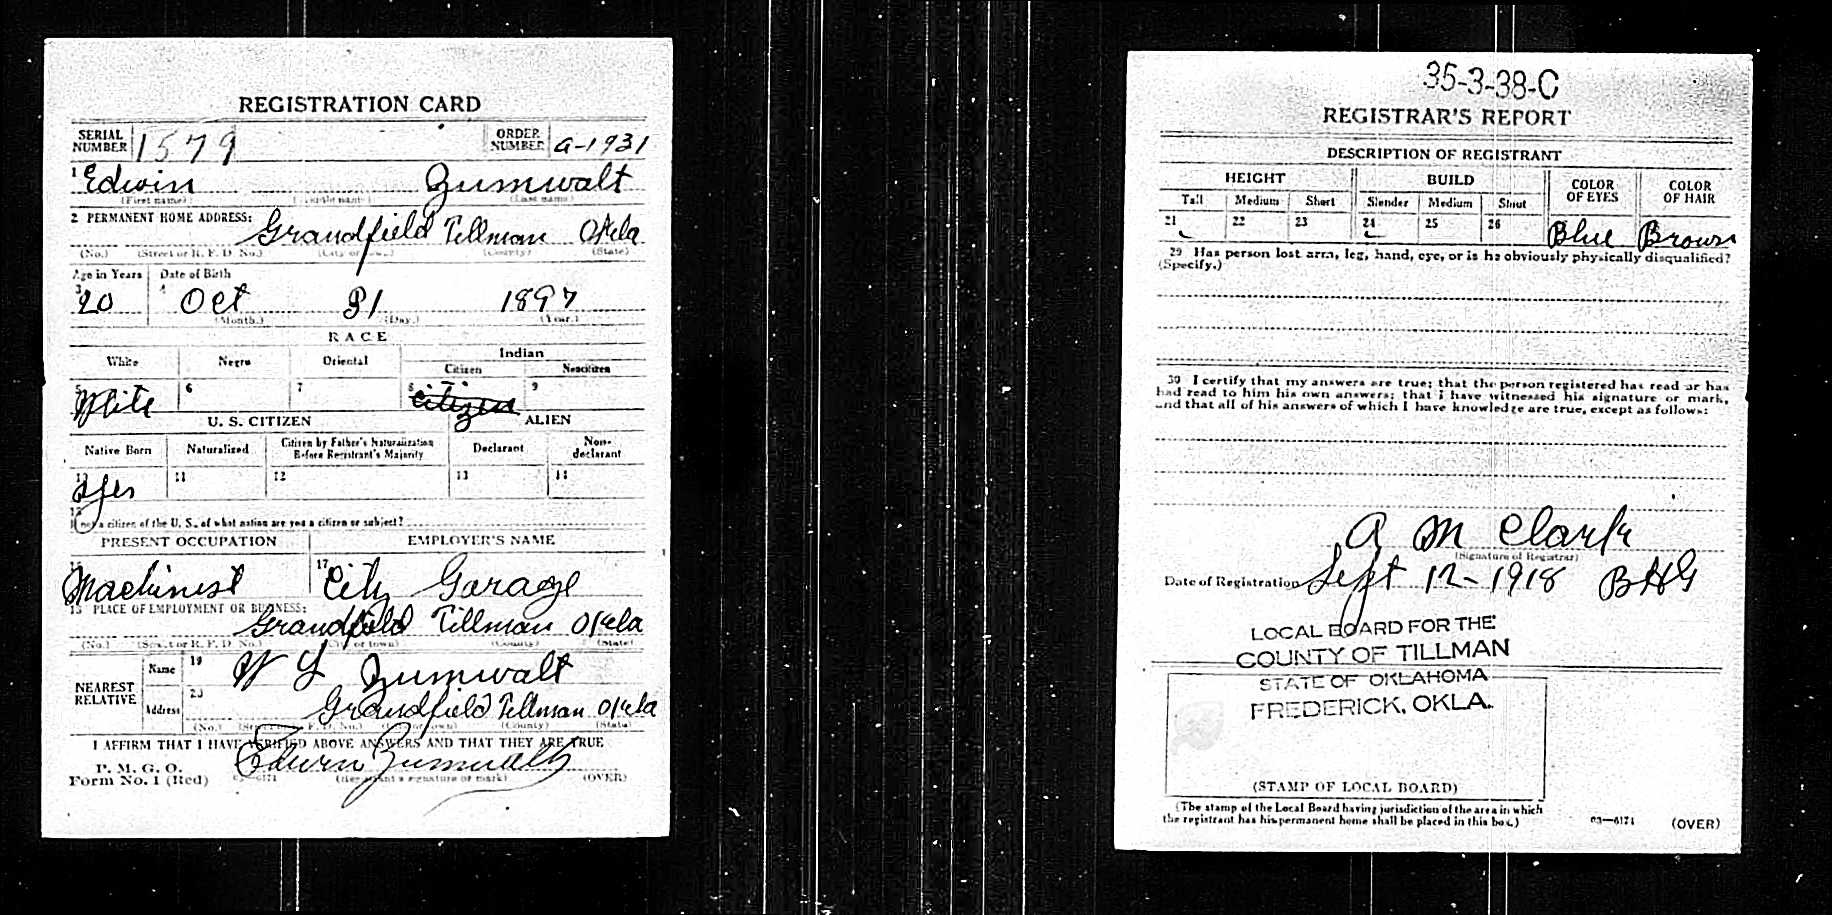 REGISTRATION CARD
SERIAL NUMBER 1579 ORDER NUMBER a-1931
1 Edwin Zumwalt
(First name) (Middle name) (Last name)
2 PERMANENT HOME ADDRESS:
Grandfield Tillman Okla
(No.) (Street or R. F. D. No.) (City or town) (County) (State)
Age in Years Date of Birth
3 20 4 Oct 31 1897
(Month.) (Day.) (Year.)
RACE
White Negro Oriental Indian
Citizen Noncitizen
5 White 6 7 8 Citizen 9
U. S. CITIZEN ALIEN
Native Born Naturalized Citizen by Father's Naturalization Before Registrant's Majority Declarant Non-declarant
10 Yes 11 12 13 14
15 If not a citizen of the U. S., of what nation are you a citizen or subject?
PRESENT OCCUPATION EMPLOYER'S NAME
16 Machinist 17 City Garage
18 PLACE OF EMPLOYMENT OR BUSINESS:
Grandfield Tillman Okla
(No.) (Street or R. F. D. No.) (City or town) (County) (State)
NEAREST RELATIVE Name 19 W L Zumwalt
Address 20 Grandfield Tillman Okla
(No.) (Street or R. F. D. No.) (City or town) (County) (State)
I AFFIRM THAT I HAVE VERIFIED ABOVE ANSWERS AND THAT THEY ARE TRUE
P. M. G. O.
Form No. 1 (Red) 03—6171 Edwin Zumwalt
(Registrant's signature or mark) (OVER)
35-3-38-C
REGISTRAR'S REPORT
DESCRIPTION OF REGISTRANT
HEIGHT BUILD COLOR OF EYES COLOR OF HAIR
Tall Medium Short Slender Medium Stout
21 22 23 24 25 26 Blue Brown
29 Has person lost arm, leg, hand, eye, or is he obviously physically disqualified?
(Specify.)
30 I certify that my answers are true; that the person registered has read or has
had read to him his own answers; that I have witnessed his signature or mark,
and that all of his answers of which I have knowledge are true, except as follows:
A M Clark
(Signature of Registrar)
Date of Registration Sept 12-1918 BHG
LOCAL BOARD FOR THE
COUNTY OF TILLMAN
STATE OF OKLAHOMA
FREDERICK, OKLA.
(STAMP OF LOCAL BOARD)
(The stamp of the Local Board having jurisdiction of the area in which
the registrant has his permanent home shall be placed in this box.)
03—6171 (OVER)